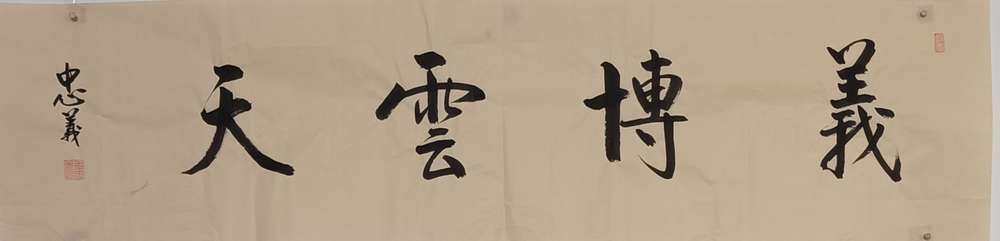 義博雲天
忠義